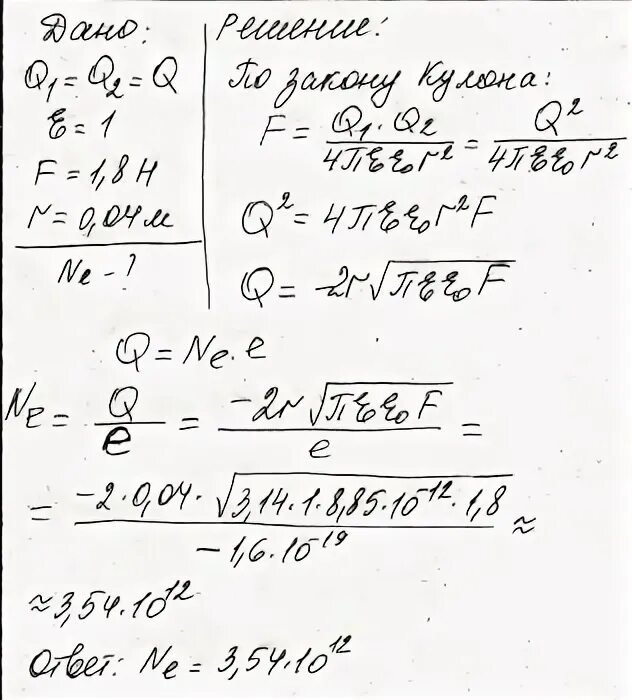 Дано:
Q₁ = Q₂ = Q
ε = 1
F = 1,8 Н
r = 0,04 м
Nₑ - ?
Решение:
По закону Кулона:
F = Q₁ · Q₂ / 4πεε₀r² = Q² / 4πεε₀r²
Q² = 4πεε₀r²F
Q = -2r√(πεε₀F)
Q = Nₑ · e
Nₑ = Q / e = -2r√(πεε₀F) / e =
= -2 · 0,04 · √(3,14 · 1 · 8,85 · 10⁻¹² · 1,8) / -1,6 · 10⁻¹⁹ ≈
≈ 3,54 · 10¹²
Ответ: Nₑ = 3,54 · 10¹²